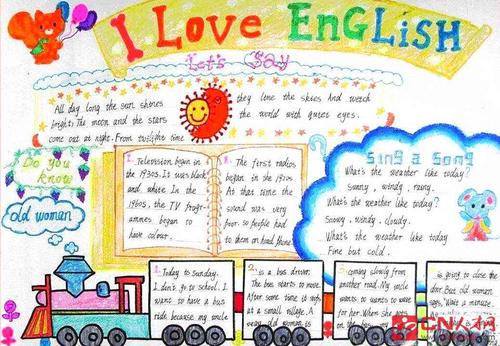 I Love EnGLiSH
Let's Say
All day long the sun shines
bright. The moon and the stars
come out at night. From twilight time
they line the skies And watch
the world with quiet eyes.
Do you
know
old woman
1. Television began in
the 1930s. It was black
and white. In the
1960s, the TV progr-
ammes began to
have colour.
The first radios
began in the 1920s
At that time the
sound was very
poor. so people had
to them on head phone
Sing a Song
What's the weather like today?
Sunny, windy, rainy.
What's the weather like today?
Snowy, windy, cloudy.
What's the weather like today
Fine but cold.
1. Today to sunday.
I don't go to school. I
want to have a bus
ride because my uncle
2. is a bus driver.
The bus wants to move.
After some time it stops
at a small village. A
old woman is
3. coming slowly from
another road. My uncle
wants to wants to wave
for her. When she gets
on the bus, my
is going to close the
door. But old woman
says, "Wait a minute.
CN人才网